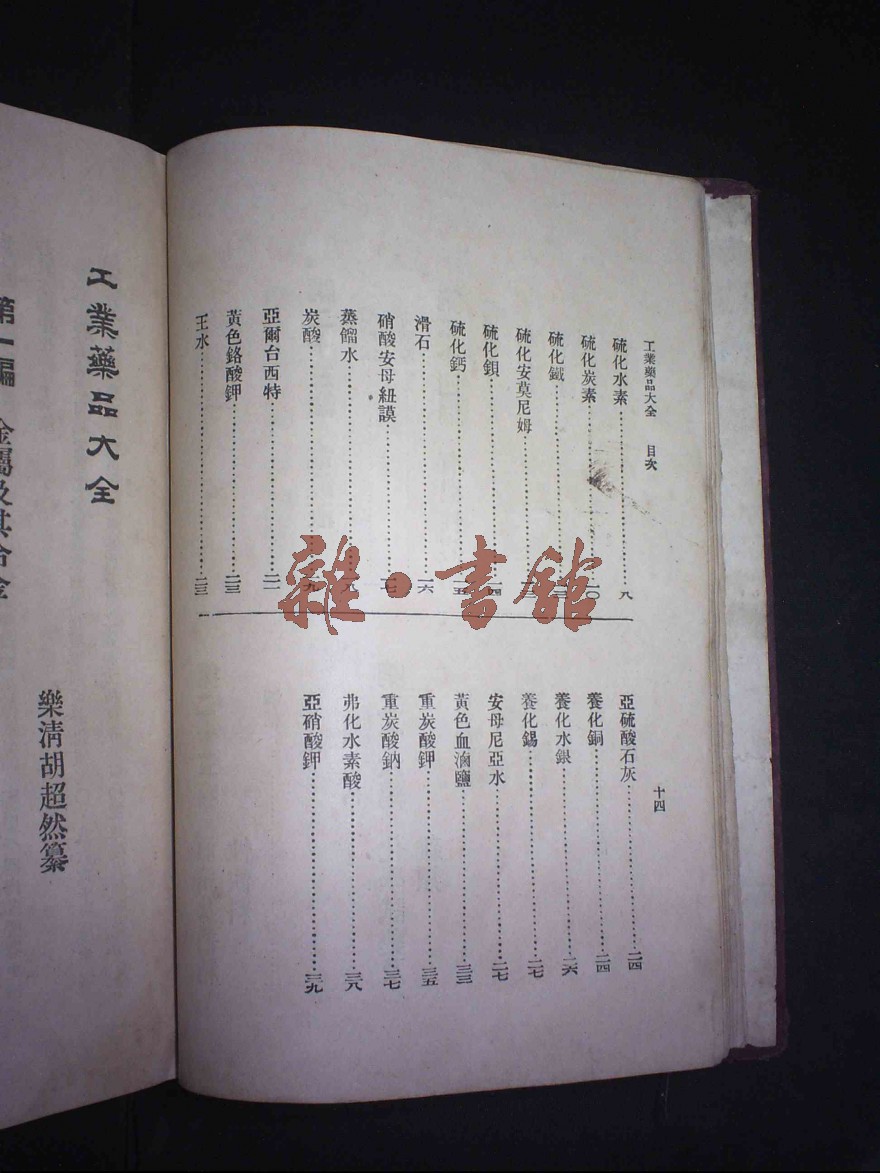 工業藥品大全 目次 十四
硫化水素 八
硫化炭素 一〇
硫化鐵
硫化安莫尼姆
硫化鋇
硫化鈣
滑石 一六
硝酸安母紐謨
蒸餾水
炭酸
亞爾台西特 二一
黃色鉻酸鉀 二三
王水 二三
亞硫酸石灰 二四
養化銅 二四
養化水銀 二六
養化錫 二七
安母尼亞水 二七
黃色血滷鹽 三三
重炭酸鉀 三五
重炭酸鈉 三七
弗化水素酸 三八
亞硝酸鉀 三九
雜·書館
工業藥品大全
樂清胡超然纂
第一編 金屬及其合金